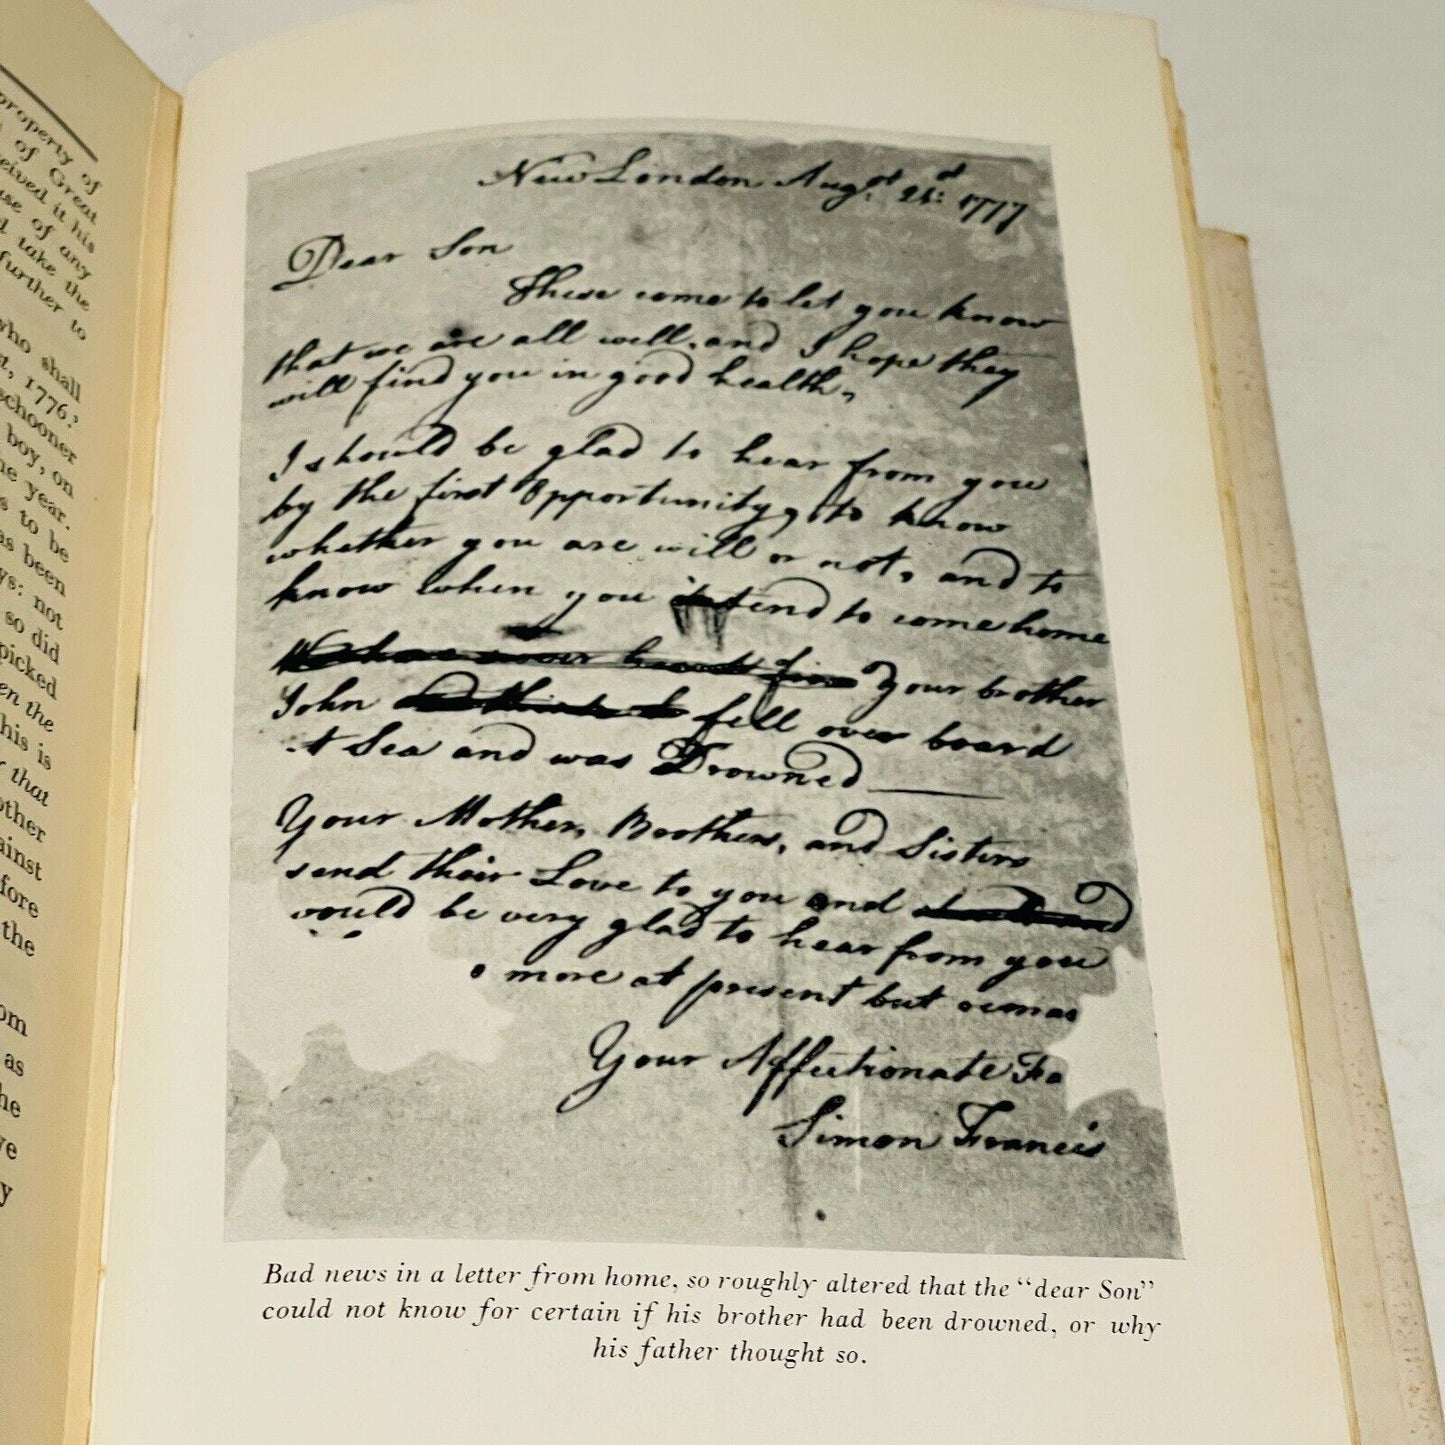 property of
of Great
ceived it his
use of any
take the
further to
who shall
1776.'
schooner
boy, on
year.
to be
been
not
so did
picked
the
This is
that
the
om
as
New London Augst. 21st: 1777
Dear Son
These come to let you know
that we are all well, and I hope they
will find you in good health,
I should be glad to hear from you
by the first Opportunity, to know
whether you are well or not, and to
know when you intend to come home
We have never heard from Your brother
John and think he fell over board
at Sea and was Drowned
Your Mother, Brothers, and Sisters
send their Love to you and
would be very glad to hear from you
o more at present but remas
Your Affectionate Fa
Simon Francis
Bad news in a letter from home, so roughly altered that the "dear Son"
could not know for certain if his brother had been drowned, or why
his father thought so.